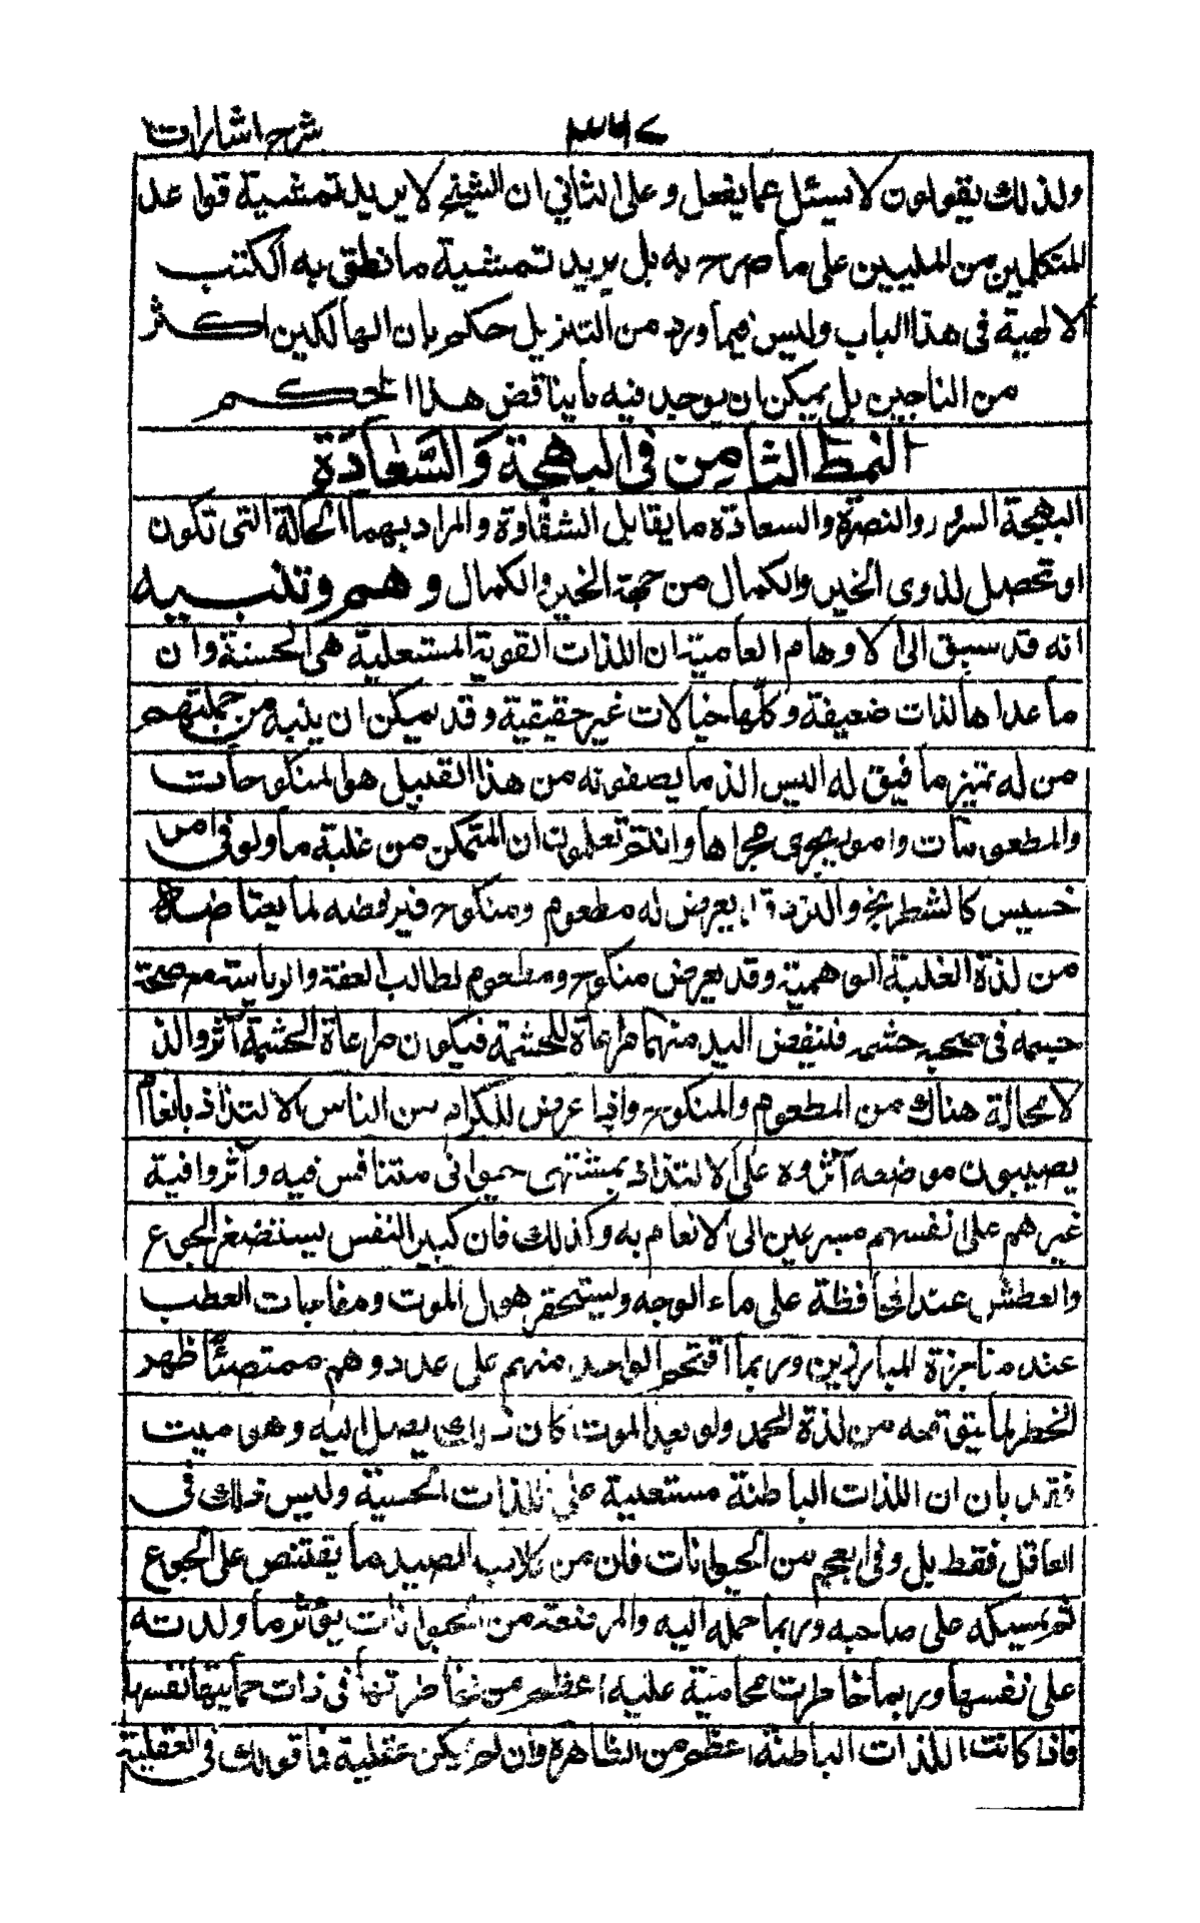 شرح اشارات
ولذلك يقولون لا يسئل عما يفعل وعلى الثاني ان الشيخ لا يريد تمشية قواعد
المتكلمين من المليين على ما صرح به بل يريد تمشية ما نطق به الكتب
الالهية فى هذا الباب وليس فيما ورد من التنزيل حكم بان الهالكين اكثر
من الناجين بل يمكن ان يوجد فيه ما يناقض هذا الحكم
النمط الثامن فى البهجة والسعادة
البهجة السرور والنضرة والسعادة ما يقابل الشقاوة والمراد بهما الحالة التى تكون
او تحصل لذوى الخير والكمال من جهة الخير والكمال وهم وتنبيه
انه قد سبق الى الاوهام العامية ان اللذات القوية المستعلية هى الحسنة وان
ما عداها لذات ضعيفة وكلها خيالات غير حقيقية وقد يمكن ان ينبه من جملتهم
من له تميز ما فيق له اليس الذ ما يصفونه من هذا القبيل هو المنكوحات
والمطعومات وامور يجرى مجراها وانتم تعلمون ان المتمكن من غلبة ما ولو فى امر
خسيس كالشطرنج والنرد قد يعرض له مطعوم ومنكوح فيرفضه لما يعتاضه
من لذة الغلبة الوهمية وقد يعرض منكوح ومطعوم لطالب العفة والرياسة مع صحة
جسمه فى صحبه حشمه فينفض اليد منهما مراعاة للحشمة فيكون مراعاة الحشمة آثر والذ
لا محالة هناك من المطعوم والمنكوح واذا عرض للكرام من الناس الالتذاذ بانعام
يصيبون موضعه آثروه على الالتذاذ بمشتهى حيوانى متنافس فيه وآثروا فيه
غيرهم على انفسهم مسرعين الى الانعام به وكذلك فان كبير النفس يستصغر الجوع
والعطش عند المحافظة على ماء الوجه ويستحقر هول الموت ومفاجات العطب
عند مناجزة المبارزين وربما اقتحم الواحد منهم على عدد وهم ممتصئا ظهر
الخطر لما يتوقعه من لذة الحمد ولو بعد الموت كان ذلك يصل اليه وهو ميت
فقد بان ان اللذات الباطنة مستعلية على اللذات الحسية وليس ذلك فى
العاقل فقط بل وفى العجم من الحيوانات فان من كلاب الصيد ما يقتنص على الجوع
ثم يمسكه على صاحبه وربما حمله اليه والمرضعة من الحيوانات يؤثر ما ولدته
على نفسها وربما خاطرت محامية عليه اعظم من مخاطرتها فى ذات حمايتها نفسها
فاذا كانت اللذات الباطنة اعظم من الظاهرة وان لم يكن عقلية فما قولك فى العقلية